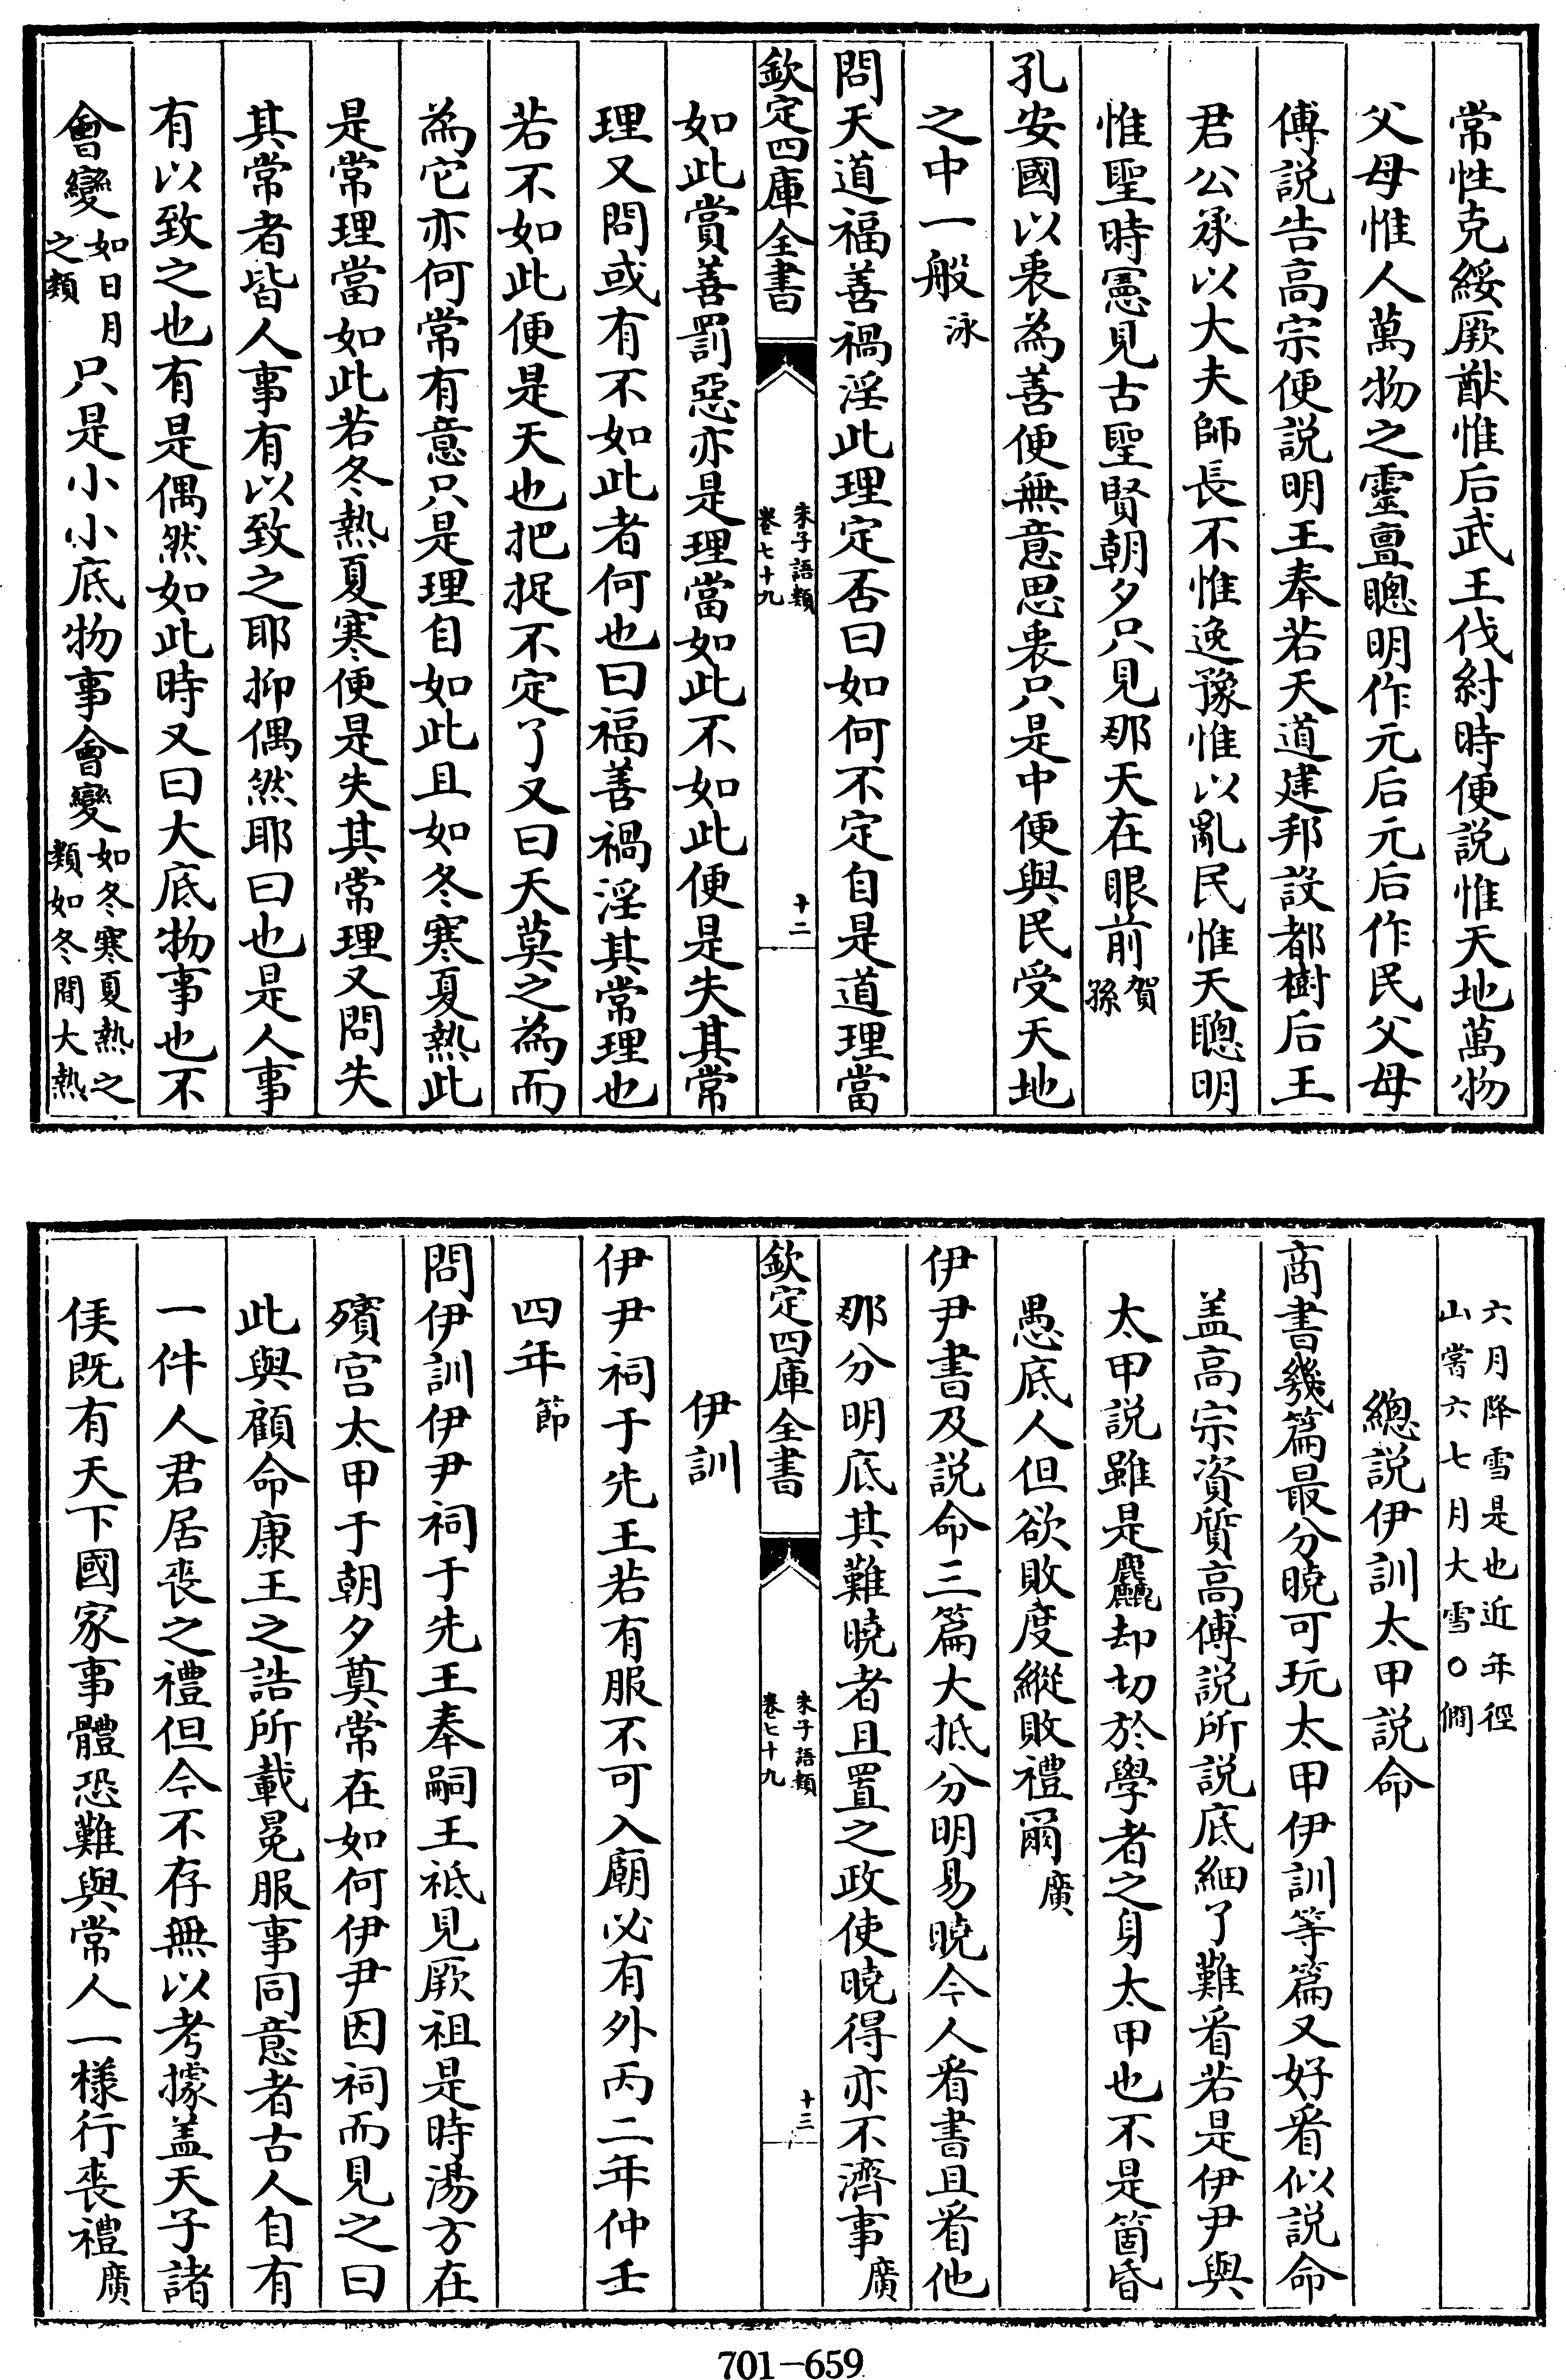 常性克綏厥猷惟后武王伐紂時便説惟天地萬物
父母惟人萬物之靈亶聰明作元后元后作民父母
傅説告高宗便説明王奉若天道建邦設都樹后王
君公承以大夫師長不惟逸豫惟以亂民惟天聰明
惟聖時憲見古聖賢朝夕只見那天在眼前賀孫
孔安國以衷為善便無意思衷只是中便與民受天地
之中一般泳
問天道福善禍淫此理定否曰如何不定自是道理當
欽定四庫全書
朱子語類
卷七十九
十二
如此賞善罰惡亦是理當如此不如此便是失其常
理又問或有不如此者何也曰福善禍淫其常理也
若不如此便是天也把捉不定了又曰天莫之為而
為它亦何常有意只是理自如此且如冬寒夏熱此
是常理當如此若冬熱夏寒便是失其常理又問失
其常者皆人事有以致之耶抑偶然耶曰也是人事
有以致之也有是偶然如此時又曰大底物事也不
會變如日月之類只是小小底物事會變如冬寒夏熱之類如冬間大熱
六月降雪是也近年徑山嘗六七月大雪○僩
總説伊訓太甲説命
商書幾篇最分曉可玩太甲伊訓等篇又好看似説命
盖高宗資質高傅説所説底細了難看若是伊尹與
太甲説雖是麤却切於學者之身太甲也不是箇昏
愚底人但欲敗度縱敗禮爾廣
伊尹書及説命三篇大抵分明易曉今人看書且看他
那分明底其難曉者且置之政使曉得亦不濟事廣
欽定四庫全書
朱子語類
卷七十九
十三
伊訓
伊尹祠于先王若有服不可入廟必有外丙二年仲壬
四年節
問伊訓伊尹祠于先王奉嗣王祗見厥祖是時湯方在
殯宫太甲于朝夕奠常在如何伊尹因祠而見之曰
此與顧命康王之誥所載冕服事同意者古人自有
一件人君居喪之禮但今不存無以考據盖天子諸
侯既有天下國家事體恐難與常人一様行喪禮廣
701-659